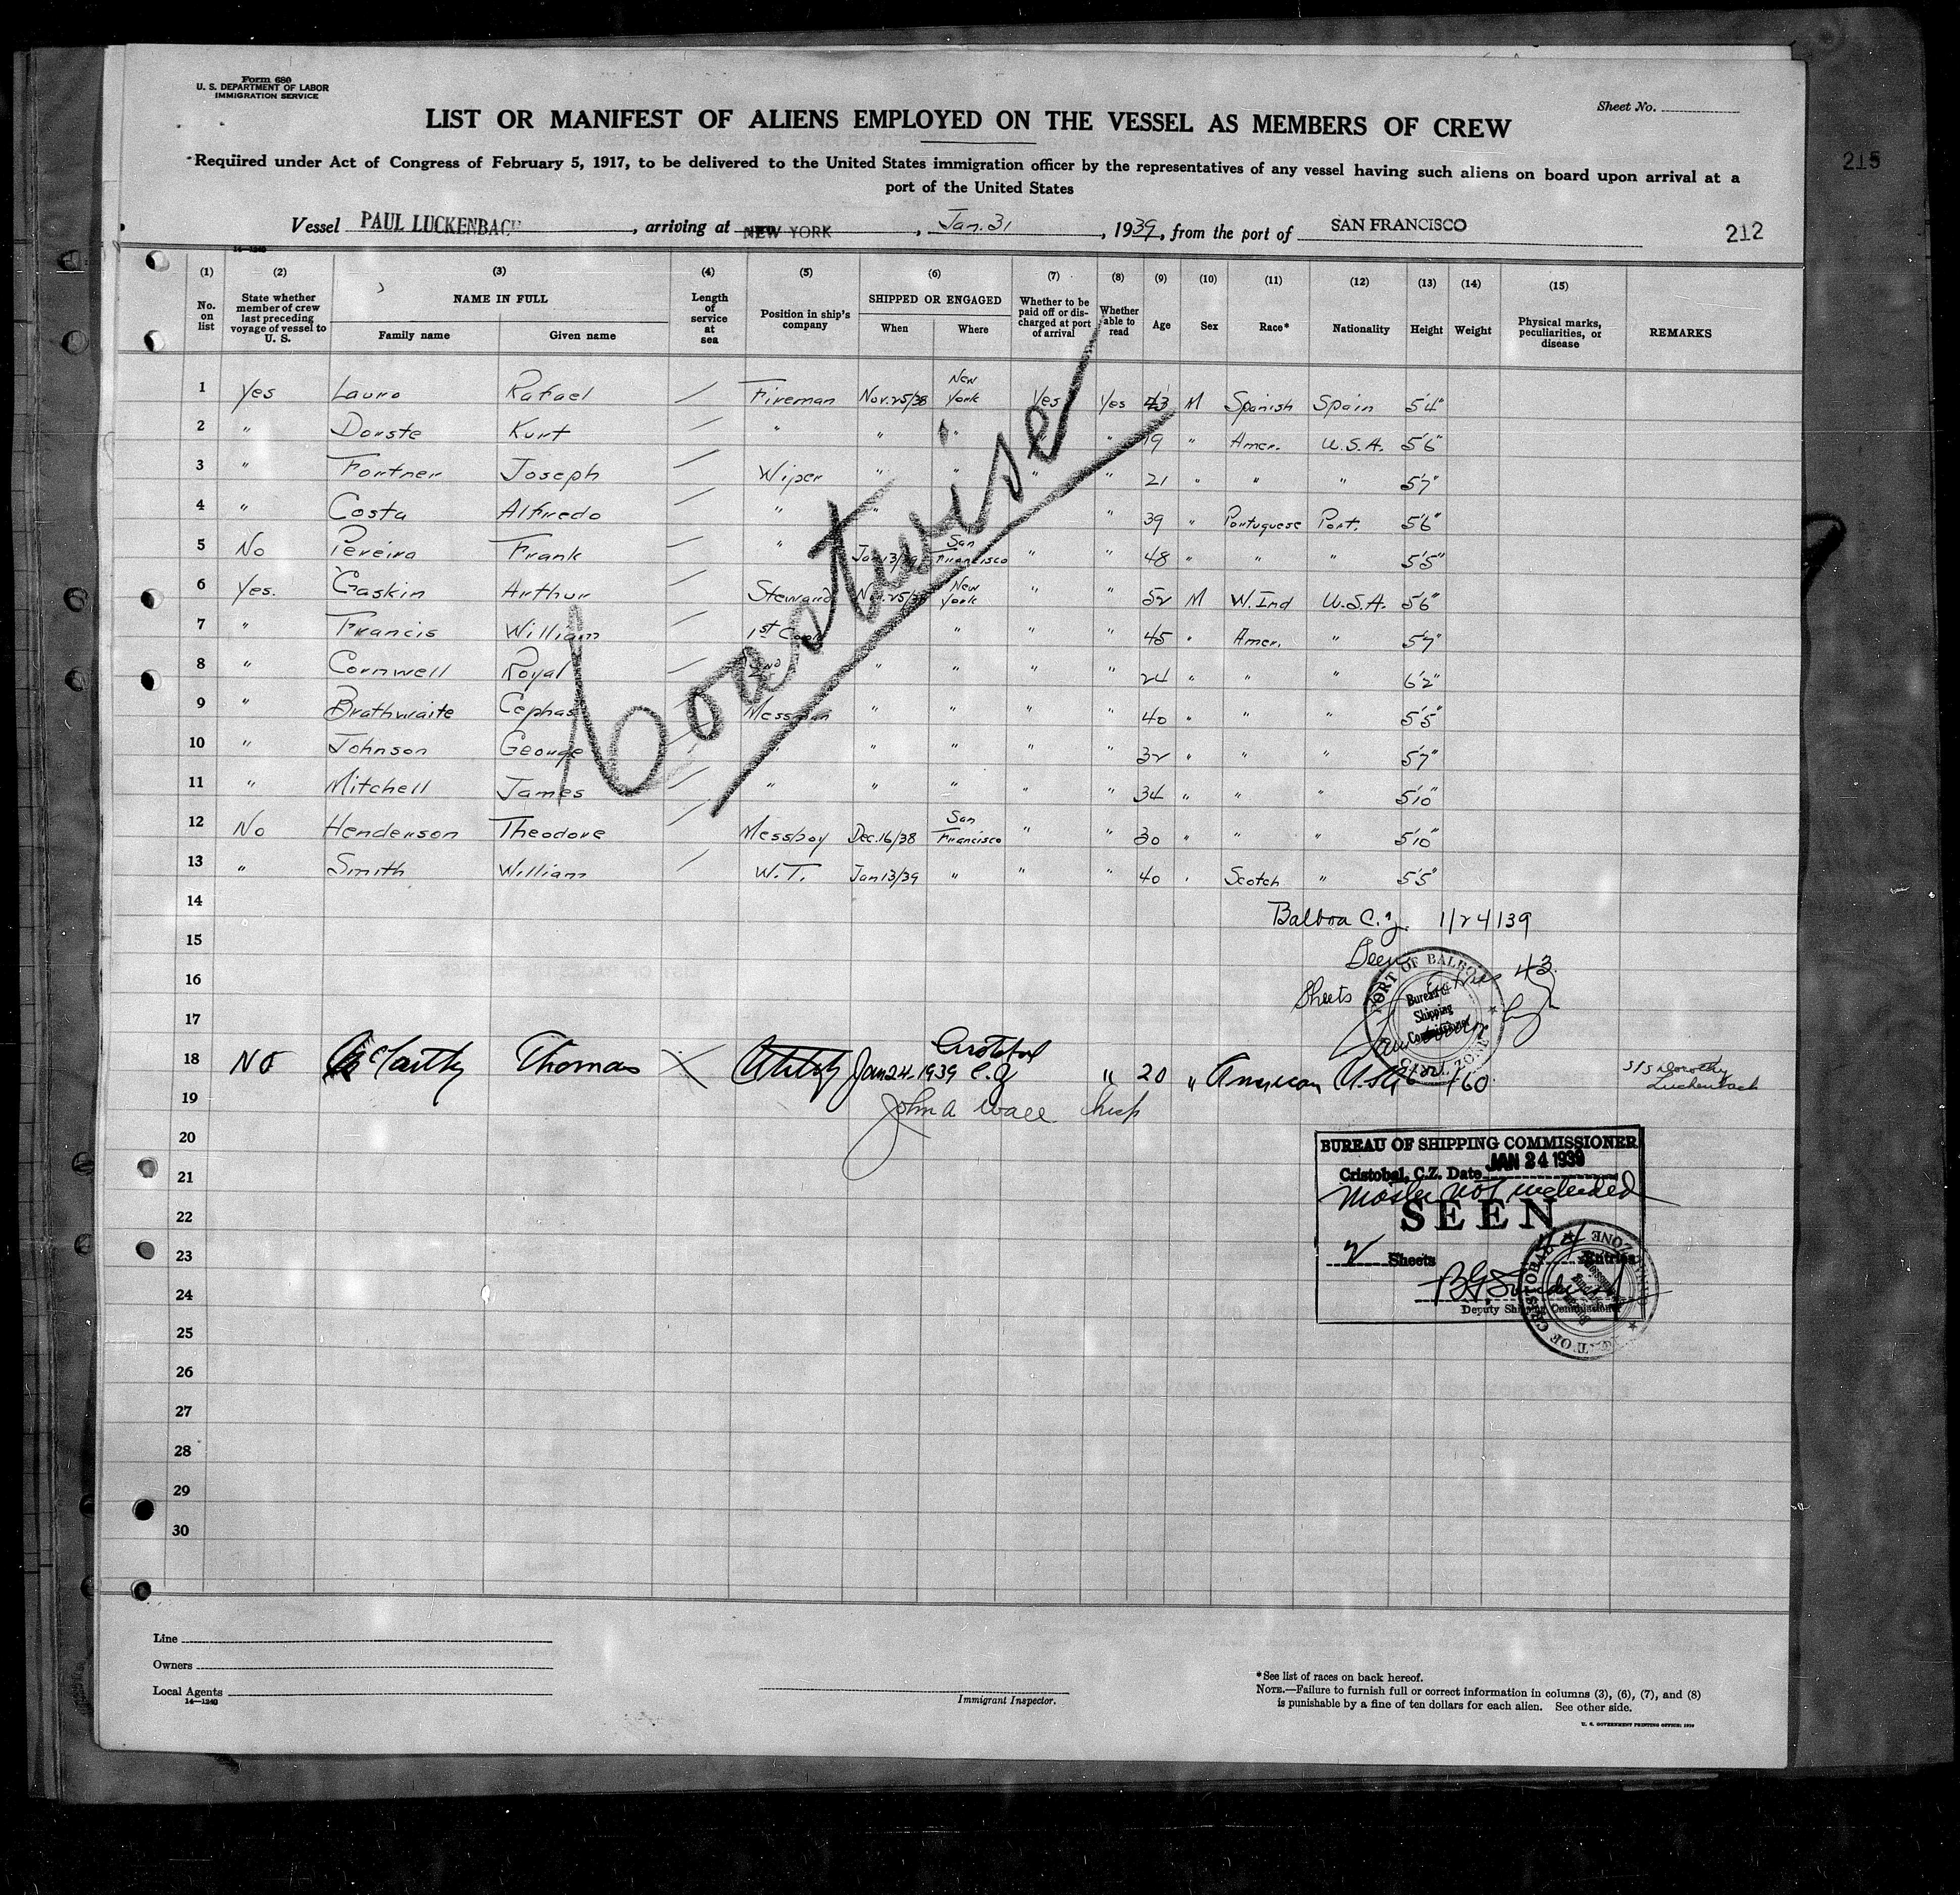 Form 680
U. S. DEPARTMENT OF LABOR
IMMIGRATION SERVICE
Sheet No.
LIST OR MANIFEST OF ALIENS EMPLOYED ON THE VESSEL AS MEMBERS OF CREW
Required under Act of Congress of February 5, 1917, to be delivered to the United States immigration officer by the representatives of any vessel having such aliens on board upon arrival at a
port of the United States
215
Vessel PAUL LUCKENBACH, arriving at NEW YORK, Jan. 31, 1939, from the port of SAN FRANCISCO
212
14-1240
(1) (2) (3) (4) (5) (6) (7) (8) (9) (10) (11) (12) (13) (14) (15)
No. on list State whether member of crew last preceding voyage of vessel to U. S. NAME IN FULL Family name Given name Length of service at sea Position in ship's company SHIPPED OR ENGAGED When Where Whether to be paid off or discharged at port of arrival Whether able to read Age Sex Race* Nationality Height Weight Physical marks, peculiarities, or disease REMARKS
1 Yes Lauro Rafael / Fireman Nov.25/38 New York Yes Yes 43 M Spanish Spain 5'4"
2 " Dorste Kurt / " " " " " 19 " Amer. U.S.A. 5'6"
3 " Fortner Joseph / Wiper " " " " 21 " " " 5'7"
4 " Costa Alfredo / " " " 39 " Portuguese Port. 5'6"
5 No Pereira Frank / " Jan 13/39 San Francisco " " 48 " " " 5'5"
6 Yes. Gaskin Arthur / Steward Nov.25/38 New York " " 52 M W. Ind U.S.A. 5'6"
7 " Francis William / 1st Cook " " " 45 " Amer. " 5'7"
8 " Cornwell Royal / 2nd " " " " " 24 " " " 6'2"
9 " Brathwaite Cephas / Messman " " " " 40 " " " 5'5"
10 " Johnson George / " " " " " 32 " " " 5'7"
11 " Mitchell James / " " " " " 34 " " " 5'10"
12 No Henderson Theodore / Messboy Dec.16/38 San Francisco " " 30 " " " 5'10"
13 " Smith William / W.T. Jan 13/39 " " " 40 " Scotch " 5'5"
14 Balboa C.Z. 1/24/39
15 Seen
16 Sheets 43
PORT OF BALBOA
Bureau of
Shipping
Commissioner
CANAL ZONE
17
18 No McCarthy Thomas X Utility Jan 24-1939 Cristobal C.Z " 20 " American U.S.A 160 S/S Dorothy Luckenbach
19 John A Wall
20
BUREAU OF SHIPPING COMMISSIONER
Cristobal, C.Z. Date JAN 24 1939
21
Master not included
SEEN
22
23
2 Sheets 44 Entries
24
Deputy Shipping Commissioner
PORT OF CRISTOBAL CANAL ZONE
25
26
27
28
29
30
Line
Owners
Local Agents
14-1240
Immigrant Inspector.
*See list of races on back hereof.
NOTE.—Failure to furnish full or correct information in columns (3), (6), (7), and (8)
is punishable by a fine of ten dollars for each alien. See other side.
U. S. GOVERNMENT PRINTING OFFICE: